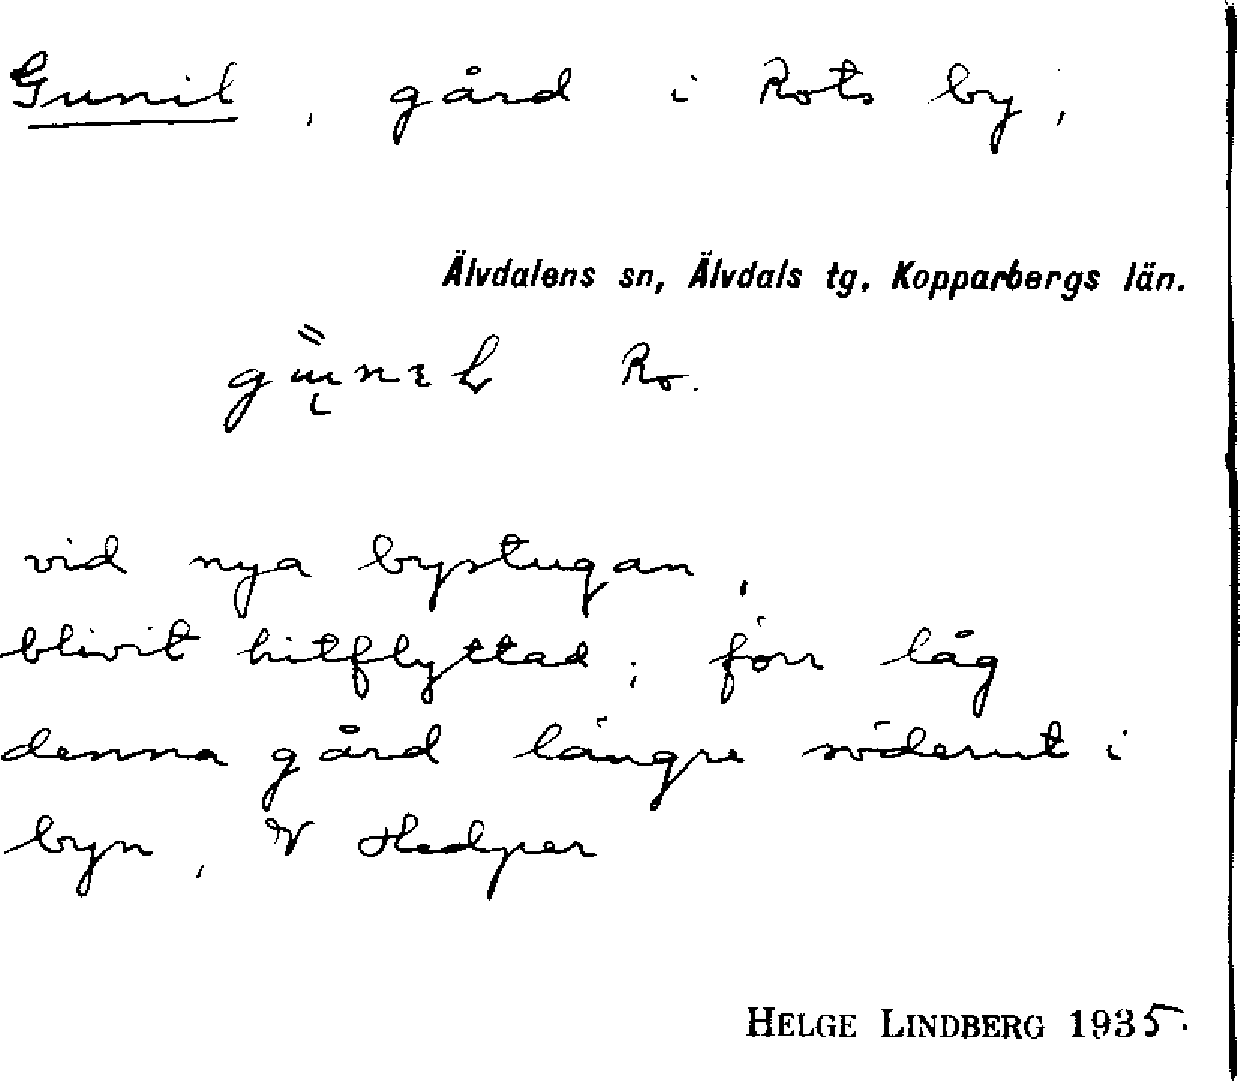 Gunil, gård i Rots by,
Älvdalens sn, Älvdals tg. Kopparbergs län.
Ro.
vid nya bystugan,
blivit hitflyttad; förr låg
denna gård längre söderut i
byn, V Hedper
HELGE LINDBERG 1935.